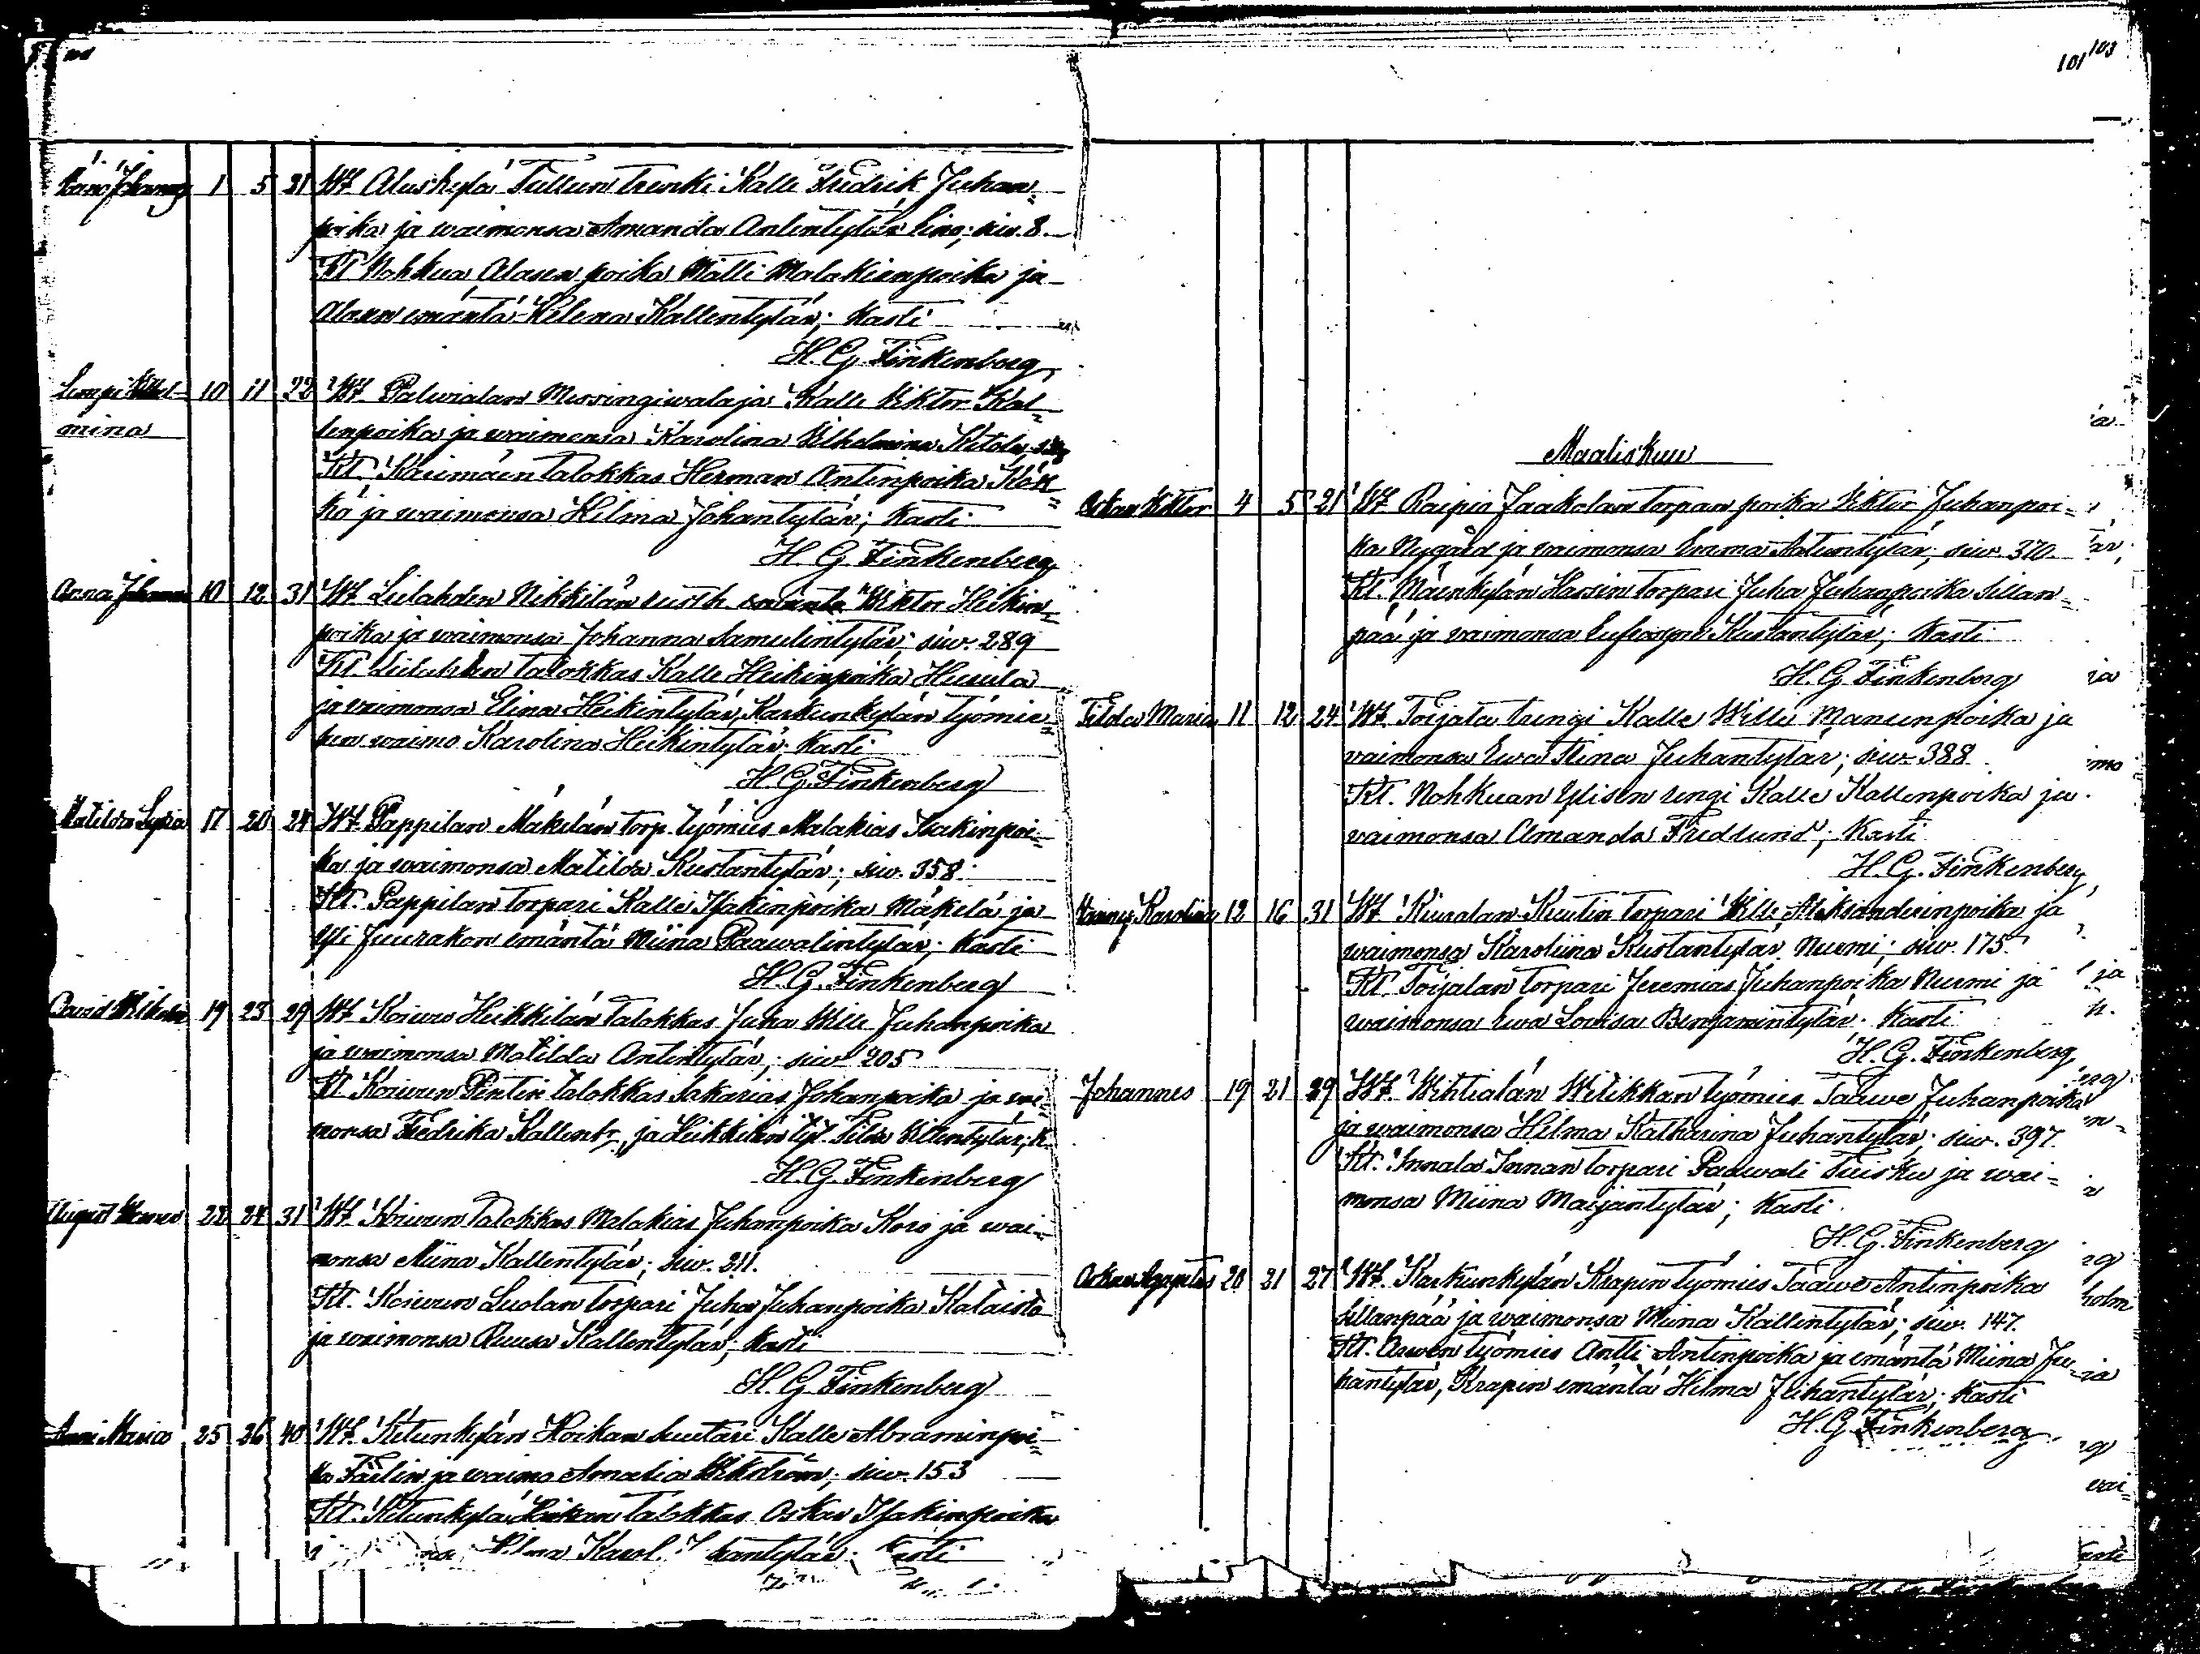 101 103
Johannes 1 5 31 Wt Aluskylä Tullun trenki Kalle Fredrik Juhan-
poika ja waimonsa Amanda Antintytär Lino; siw. 8.
Kt Nohkua Alasen poika Matti Malakianpoika ja
Alasen emäntä Helena Kallentytär; Kasti
H. G. Finkenberg
Lempi Wilhel- 10 11 22 Wt Palwialan Messingiwalaja Kalle Viktor Kal-
mina lenpoika ja waimonsa Karolina Wilhelmina Ketola,
Kt. Kaumäen talokkas Herman Antinpoika
ja waimonsa Hilma Johantytär; Kasti
H. G. Finkenberg
Anna Johanna 10 12 31 Wt Lielahden Nikkilän Viktor Heikin-
poika ja waimonsa Johanna Samulintytär; siw. 289
Kt. Lielahden talokkas Kalle Heikinpoika Heusala
ja waimonsa Elina Heikintytär, Karkunkylän työmie-
hen waimo Karolina Heikintytär. Kasti
H. G. Finkenberg
Matilda Lydia 17 20 24 Wt Pappilan Mäkelän torp. työmies Malakias Isakinpoi-
ka ja waimonsa Matilda Kustantytär; siw. 358.
Kt. Pappilan torpari Kalle Isakinpoika Mäkelä ja
Yli Juurakon emäntä Miina Paawalintytär; Kasti
H. G. Finkenberg
19 23 29 Wt Koiwro Heikkilän talokkas Juha Wille Juhanpoika
ja waimonsa Matilda Antintytär; siw 205
Kt Koiwun Pentin talokkas Sakarias Johanpoika ja wai-
monsa Fredrika Kallent., ja Heikkilän tyt. Tilda Willentytär; K.
H. G. Finkenberg
August 22 24 31 Wt Koiwun talokkas Malakias Juhanpoika Koro ja wai-
monsa Miina Kallentytär; siw. 211.
Kt. Koiwun Luolan torpari Juha Juhanpoika Kataisto
ja waimonsa Ruusa Kallentytär; Kasti
H. G. Finkenberg
Anni Maria 25 26 40 Wt. Ketunkylän Hoikan suutari Kalle Abraminpoi-
ka ja waimo Amalia Wikström; siw. 153
Kt. Ketunkylä Hoikan talokkas Oskar Isakinpoika
Karol. Kasti
Maaliskuu
Oskar Viktor 4 5 21 Wt Raipio Jaakolan torpan poika Viktor Juhanpoi-
ka Nygård ja waimonsa Emma Antintytär; siw. 370.
Kt. Mäenkylän Hassin torpari Juha Juhanpoika Sillan-
pää ja waimonsa Eufrosyne Kustantytär; Kasti
H. G. Finkenberg
Tilda Maria 11 12 24 Wt. Toijala trengi Kalle Wille Manunpoika ja
waimonsa Ewa Stina Juhantytär; siw. 388.
Kt. Nohkuan Ylisen rengi Kalle Kallenpoika ja
waimonsa Amanda Fredlund; Kasti
H. G. Finkenberg
Fanny Karolina 12 16 31 Wt Kiuralan Knutin torpari Wille Aleksanderinpoika ja
waimonsa Karoliina Kustantytär Nurmi; siw. 175.
Kt. Toijalan torpari Jeremias Juhanpoika Nurmi ja
waimonsa Ewa Lowisa Benjamintytär. Kasti
H. G. Finkenberg
Johannes 19 21 29 Wt. Wihtialan Witikkan työmies Taawe Juhanpoika
ja waimonsa Hilma Katharina Juhantytär; siw. 397.
Kt. Innala Innan torpari Paawali Tuisku ja wai-
monsa Miina Maijantytär; Kasti.
H. G. Finkenberg
Oskar 20 21 27 Wt. Karkunkylän Krapin työmies Taawe Antinpoika
Sillanpää ja waimonsa Miina Kallintytär; siw. 147.
Kt. työmies Antti Antinpoika ja emäntä Miina Ju-
hantytär, Krapin emäntä Hilma Juhantytär; Kasti
H. G. Finkenberg